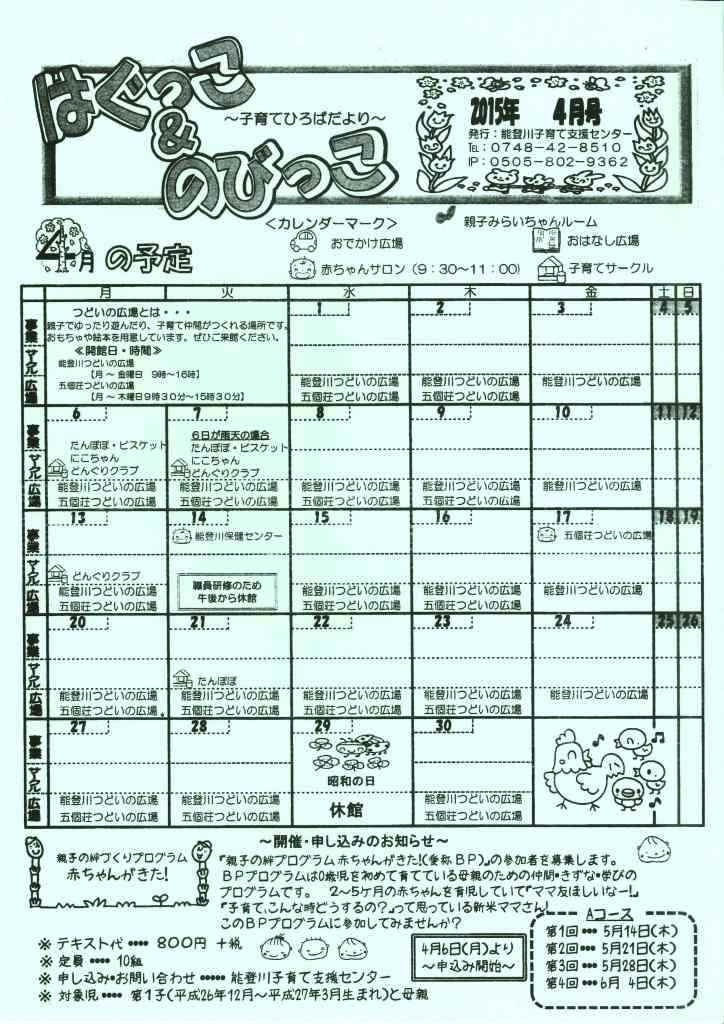 はぐっこ
&
のびっこ
～子育てひろばだより～
2015年 4月号
発行：能登川子育て支援センター
TEL：0748-42-8510
IP：0505-802-9362
4月の予定
<カレンダーマーク>
親子みらいちゃんルーム
おでかけ広場
おはなし広場
赤ちゃんサロン（9：30～11：00）
子育てサークル
月 火 水 木 金 土 日
事業 サークル 広場
つどいの広場とは・・・
親子でゆったり遊んだり、子育て仲間がつくれる場所です。
おもちゃや絵本を用意しています。ぜひご来館ください。
≪開館日・時間≫
能登川つどいの広場
【月～金曜日 9時～16時】
五個荘つどいの広場
【月～木曜日9時30分～15時30分】
1 2 3 4 5
能登川つどいの広場 能登川つどいの広場 能登川つどいの広場
五個荘つどいの広場 五個荘つどいの広場
事業 サークル 広場
6 7 8 9 10 11 12
6日が雨天の場合
たんぽぽ・ビスケット たんぽぽ・ビスケット
にこちゃん にこちゃん
どんぐりクラブ どんぐりクラブ
能登川つどいの広場 能登川つどいの広場 能登川つどいの広場 能登川つどいの広場 能登川つどいの広場
五個荘つどいの広場 五個荘つどいの広場 五個荘つどいの広場 五個荘つどいの広場
事業 サークル 広場
13 14 15 16 17 18 19
能登川保健センター 五個荘つどいの広場
どんぐりクラブ
職員研修のため
午後から休館
能登川つどいの広場 能登川つどいの広場 能登川つどいの広場 能登川つどいの広場
五個荘つどいの広場 五個荘つどいの広場 五個荘つどいの広場
事業 サークル 広場
20 21 22 23 24 25 26
たんぽぽ
能登川つどいの広場 能登川つどいの広場 能登川つどいの広場 能登川つどいの広場 能登川つどいの広場
五個荘つどいの広場 五個荘つどいの広場 五個荘つどいの広場 五個荘つどいの広場
事業 サークル 広場
27 28 29 30
昭和の日
休館
能登川つどいの広場 能登川つどいの広場 能登川つどいの広場
五個荘つどいの広場 五個荘つどいの広場 五個荘つどいの広場
～開催・申し込みのお知らせ～
親子の絆づくりプログラム
赤ちゃんがきた！
『親子の絆プログラム 赤ちゃんがきた！(愛称BP)』の参加者を募集します。
BPプログラムは0歳児を初めて育てている母親のための仲間・きずな・学びの
プログラムです。 2～5ケ月の赤ちゃんを育児していて『ママ友ほしいなー！』
『子育て、こんな時どうするの？』って思っている新米ママさん！
このBPプログラムに参加してみませんか？
※ テキスト代 •••• 800円 +税
※ 定員 •••• 10組
※ 申し込み・お問い合わせ ••••• 能登川子育て支援センター
※ 対象児 ••• 第1子(平成26年12月～平成27年3月生まれ)と母親
4月6日(月)より
～申込み開始～
Aコース
第1回 ••• 5月14日(木)
第2回 ••• 5月21日(木)
第3回 ••• 5月28日(木)
第4回 ••• 6月 4日(木)